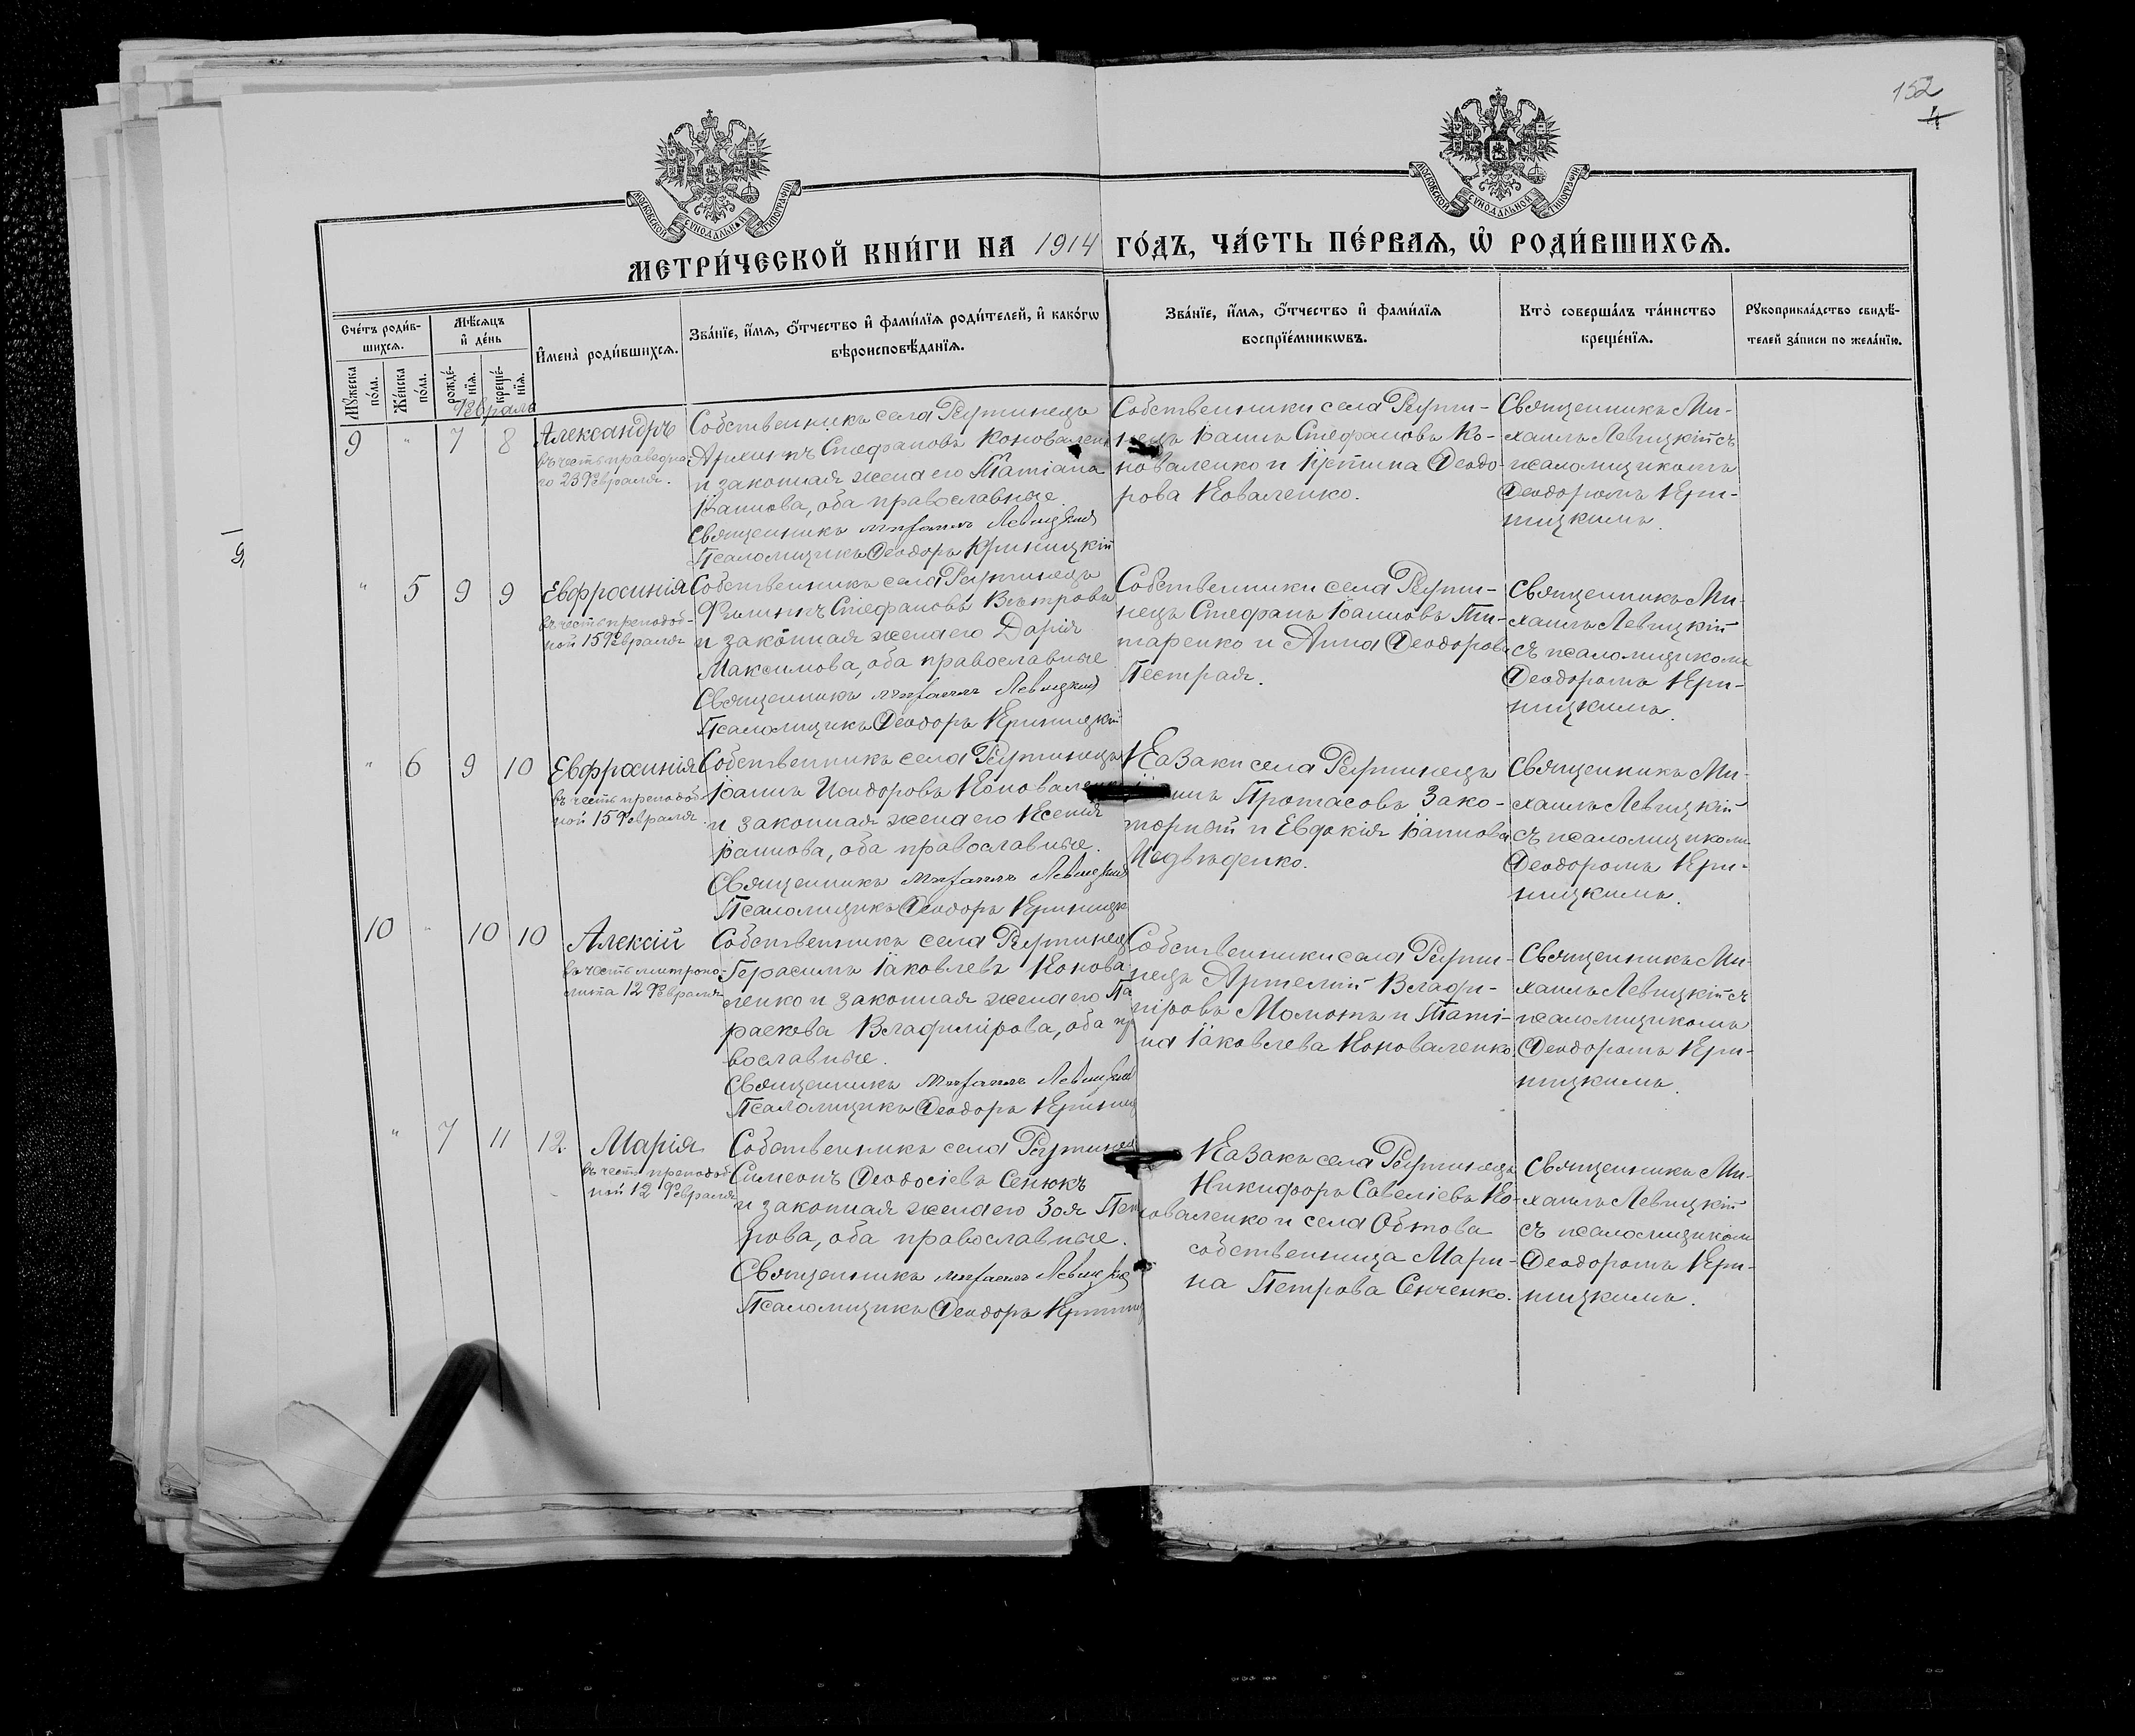 152
4
МОСКОВСКОЙ СѴНОДАЛЬНОЙ ТИПОГРАФІИ
МОСКОВСКОЙ СѴНОДАЛЬНОЙ ТИПОГРАФІИ
МЕТРИ́ЧЕСКОЙ КНИ́ГИ НА 1914 ГО́ДЪ, ЧА́СТЬ ПЕ́РВАѦ, Ѽ РОДИ́ВШИХСѦ.
Сче́тъ роди́в-
шихсѧ.
Мѣ́сѧцъ
и҆ де́нь
И҆мена̀ роди́вшихсѧ.
Зва́нїе, и҆́мѧ, ѻ҆́тчество и҆ фами́лїѧ роди́телей, и҆ како́гѡ
вѣроисповѣ́данїѧ.
Зва́нїе, и҆́мѧ, ѻ҆́тчество и҆ фами́лїѧ
воспрїе́мникѡвъ.
Кто̀ соверша́лъ та́инство
креще́нїѧ.
Рꙋкоприкла́дство свидѣ́-
телей за́писи по жела́нїю.
Мꙋ́жеска
по́ла.
Же́нска
по́ла.
рожде́-
нїѧ.
креще́-
нїѧ.
Февраль
9 " 7 8
Александръ
въ честь праведна-
го 23 Февраля.
Собственникъ села Рутинецъ
Архиппъ Стефановъ Коновален
и законная жена его Татіана
Іоаннова, оба православные.
Священникъ Михаилъ Левицкій
Псаломщикъ Ѳеодоръ Криницкій
Собственники села Рути-
нецъ Іоаннъ Стефановъ Ко-
новаленко и Іустина Ѳеодо-
рова Коваленко.
Священникъ Ми-
хаилъ Левицкій съ
псаломщикомъ
Ѳеодоромъ Кри-
ницкимъ.
9
" 5 9 9
Евфросинія
въ честь преподоб-
ной 15 Февраля
Собственникъ села Рутинецъ
Филиппъ Стефановъ Вѣтровъ
и законная жена его Дарія
Максимова, оба православные
Священникъ Михаилъ Левицкій
Псаломщикъ Ѳеодоръ Криницкій
Собственники села Рути-
нецъ Стефанъ Іоанновъ Ти-
таренко и Анна Ѳеодорова
Пестрая.
Священникъ Ми-
хаилъ Левицкій
съ псаломщикомъ
Ѳеодоромъ Кри-
ницкимъ.
" 6 9 10
Евфросинія
въ честь преподоб-
ной 15 Февраля.
Собственникъ села Рутинецъ
Іоаннъ Исидоровъ Коновален
и законная жена его Ксенія
Іоаннова, оба православные.
Священникъ Михаилъ Левицкій
Псаломщикъ Ѳеодоръ Криницк
Казаки села Рутинецъ
Протасовъ Зако-
торный и Евдокія Іоаннова
Священникъ Ми-
хаилъ Левицкій
съ псаломщикомъ
Ѳеодоромъ Кри-
ницкимъ.
10 " 10 10
Алексій
въ честь митропо-
лита 12 Февраля
Собственникъ села Рутинец
Герасимъ Іаковлевъ Конова-
ленко и законная жена его Па
раскева Владимірова, оба пр
вославные.
Священникъ Михаилъ Левицкій
Псаломщикъ Ѳеодоръ Криниц
Собственники села Рути-
нецъ Артемій Влади-
міровъ Момотъ и Татіа-
на Іаковлева Коноваленко.
Священникъ Ми-
хаилъ Левицкій съ
псаломщикомъ
Ѳеодоромъ Кри-
ницкимъ.
" 7 11 12.
Марія
въ честь преподоб-
ной 12 Февраля
Собственникъ села Рутинец
Симеонъ Ѳеодосіевъ Сенюкъ
и законная жена его Зоя Пет
рова, оба православные.
Священникъ Михаилъ Левицкій
Псаломщикъ Ѳеодоръ Криниц
Казакъ села Рутинецъ
Никифоръ Савеліевъ Ко-
новаленко и села Обтова
собственница Мари-
на Петрова Сенченко.
Священникъ Ми-
хаилъ Левицкій
съ псаломщикомъ
Ѳеодоромъ Кри-
ницкимъ.